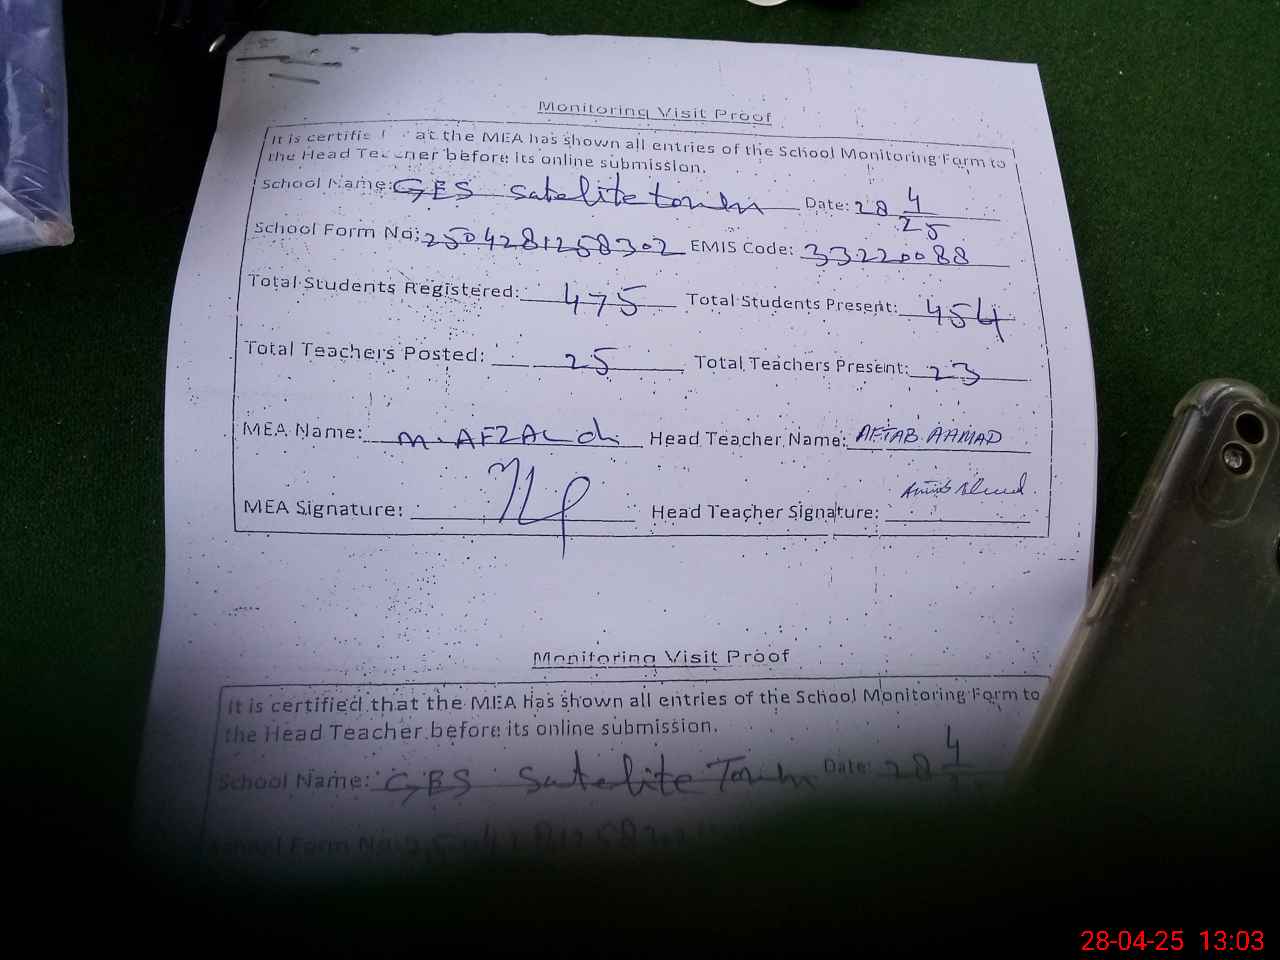 Monitoring Visit Proof
It is certifie at the MEA has shown all entries of the School Monitoring Form to
the Head Teacher before its online submission.
School Name: GES Satelite town Date: 28 4/25
School Form No: 2504281258302 EMIS Code: 33220088
Total Students Registered: 475 Total Students Present: 454
Total Teachers Posted: 25 Total Teachers Present: 23
MEA Name: M. AFZAL ch Head Teacher Name: AFTAB AHMAD
MEA Signature: Head Teacher Signature:
Monitoring Visit Proof
It is certified that the MEA has shown all entries of the School Monitoring Form to
the Head Teacher before its online submission.
School Name: GES Satelite Town Date: 28 4
School Form No
28-04-25 13:03